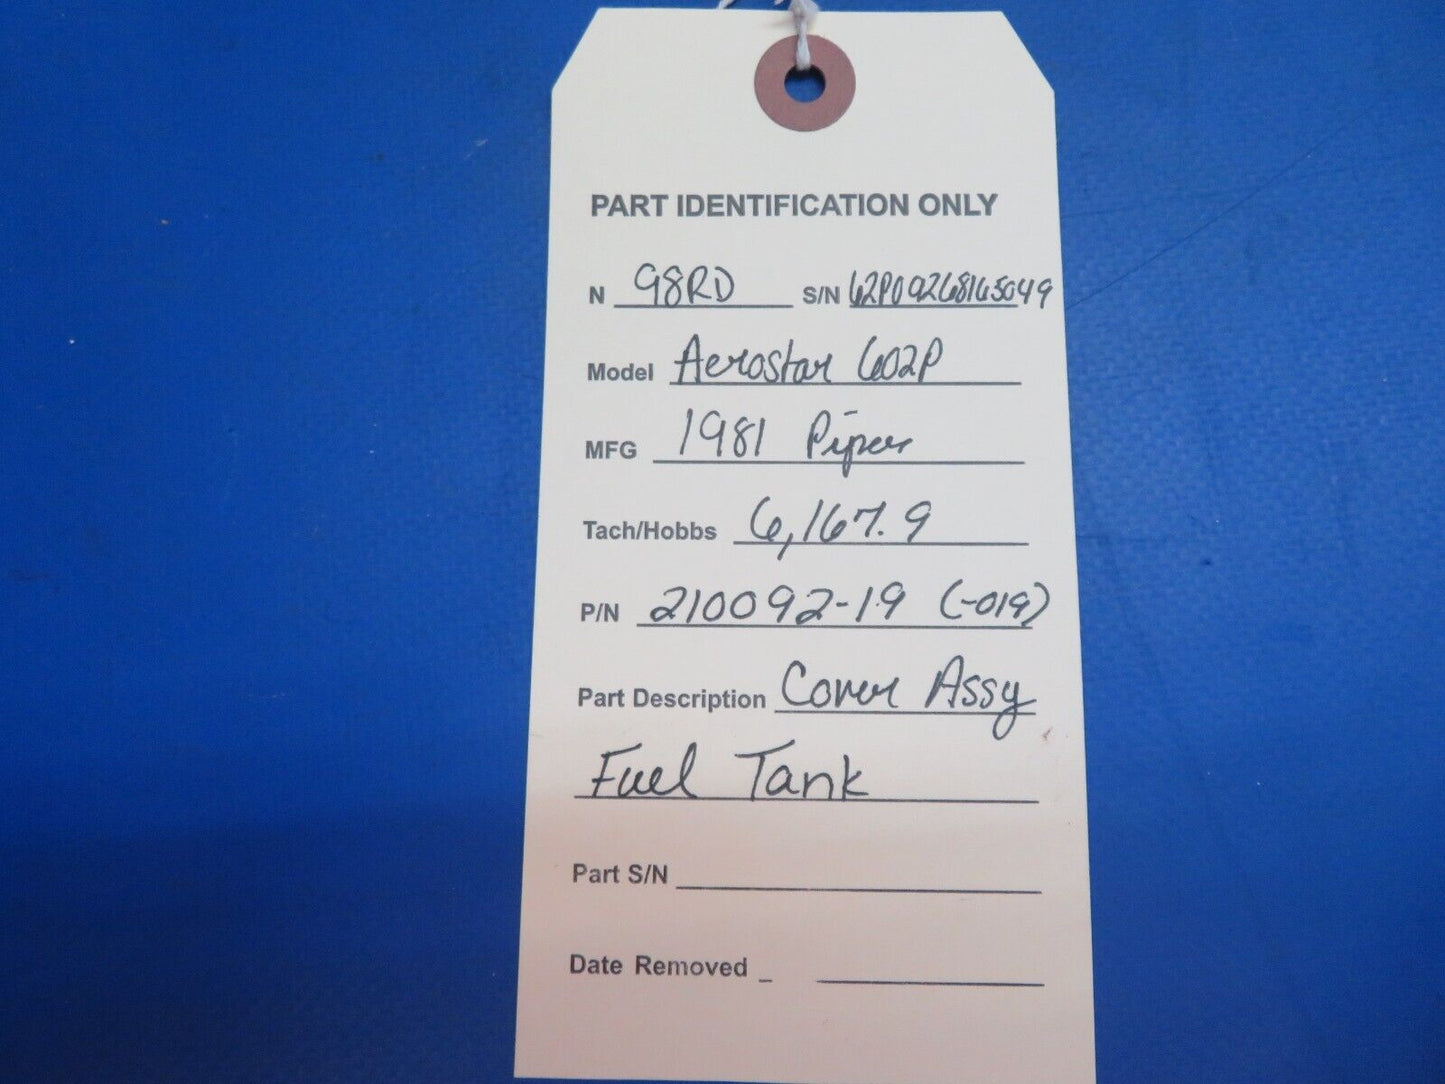 PART IDENTIFICATION ONLY
N 98RD S/N 62P09268165049
Model Aerostar 602P
MFG 1981 Piper
Tach/Hobbs 6,167.9
P/N 210092-19 (-019)
Part Description Cover Assy
Fuel Tank
Part S/N
Date Removed